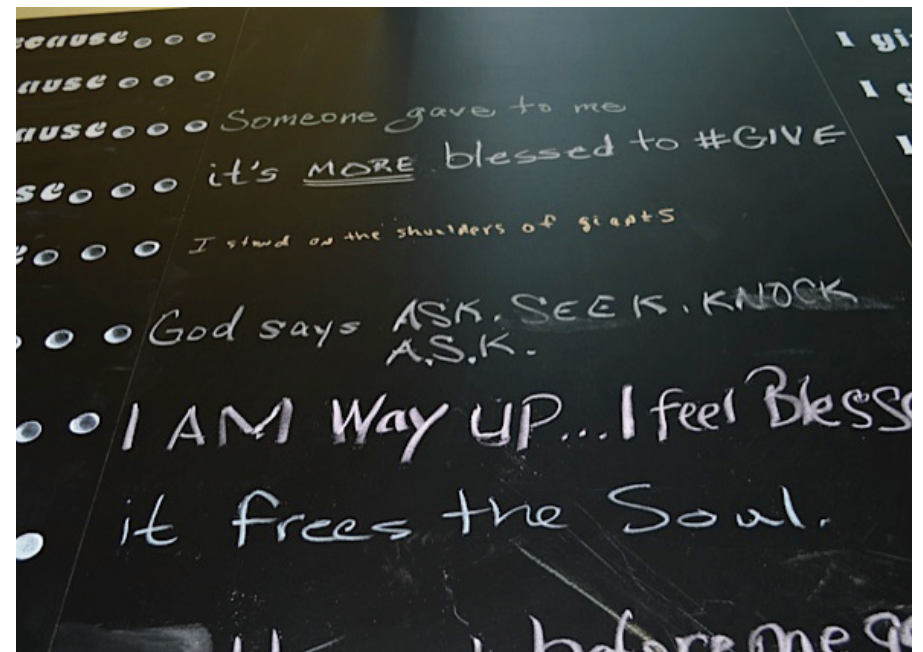 ecause... I gi
ause... I g
ause... Someone gave to me I
se... it's MORE blessed to #GIVE
e... I stand on the shoulders of giants
... God says ASK. SEEK. KNOCK
A.S.K.
.. I AM Way UP... I feel Blesse
. it frees the Soul.
before me go